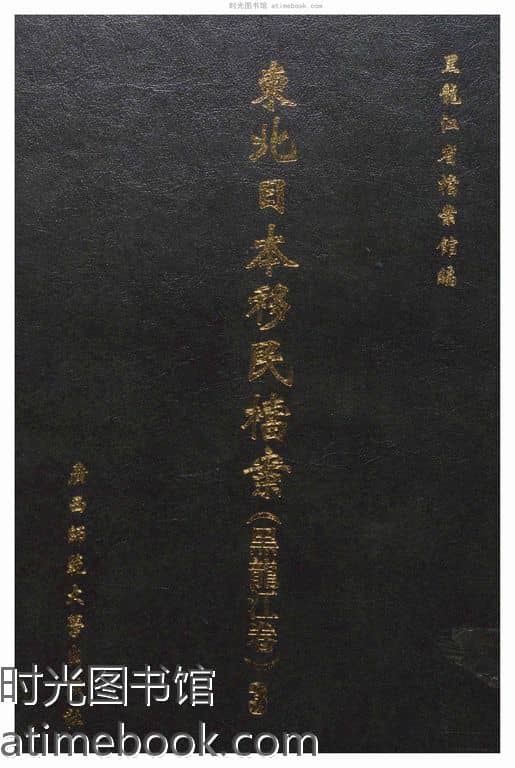 时光图书馆 atimebook.com
黑龍江省檔案館編
東北日本移民檔案（黑龍江卷）
廣西師範大學出版社
时光图书馆
atimebook.com